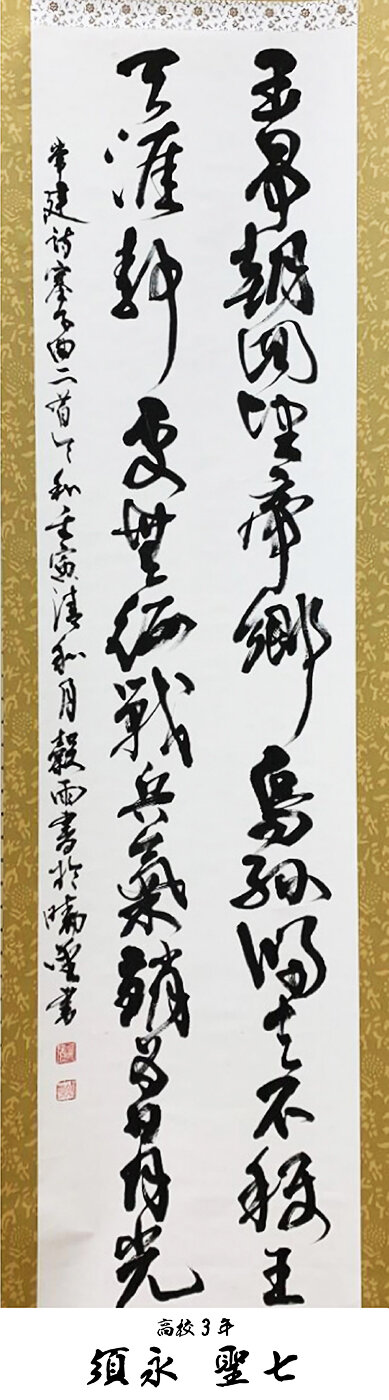 玉帛朝回望帝鄉烏孫歸去不稱王
天涯靜處無征戰兵氣銷為日月光
常建詩塞下曲二首 令和壬寅清和月穀雨書於 聖書
高校3年
須永 聖七